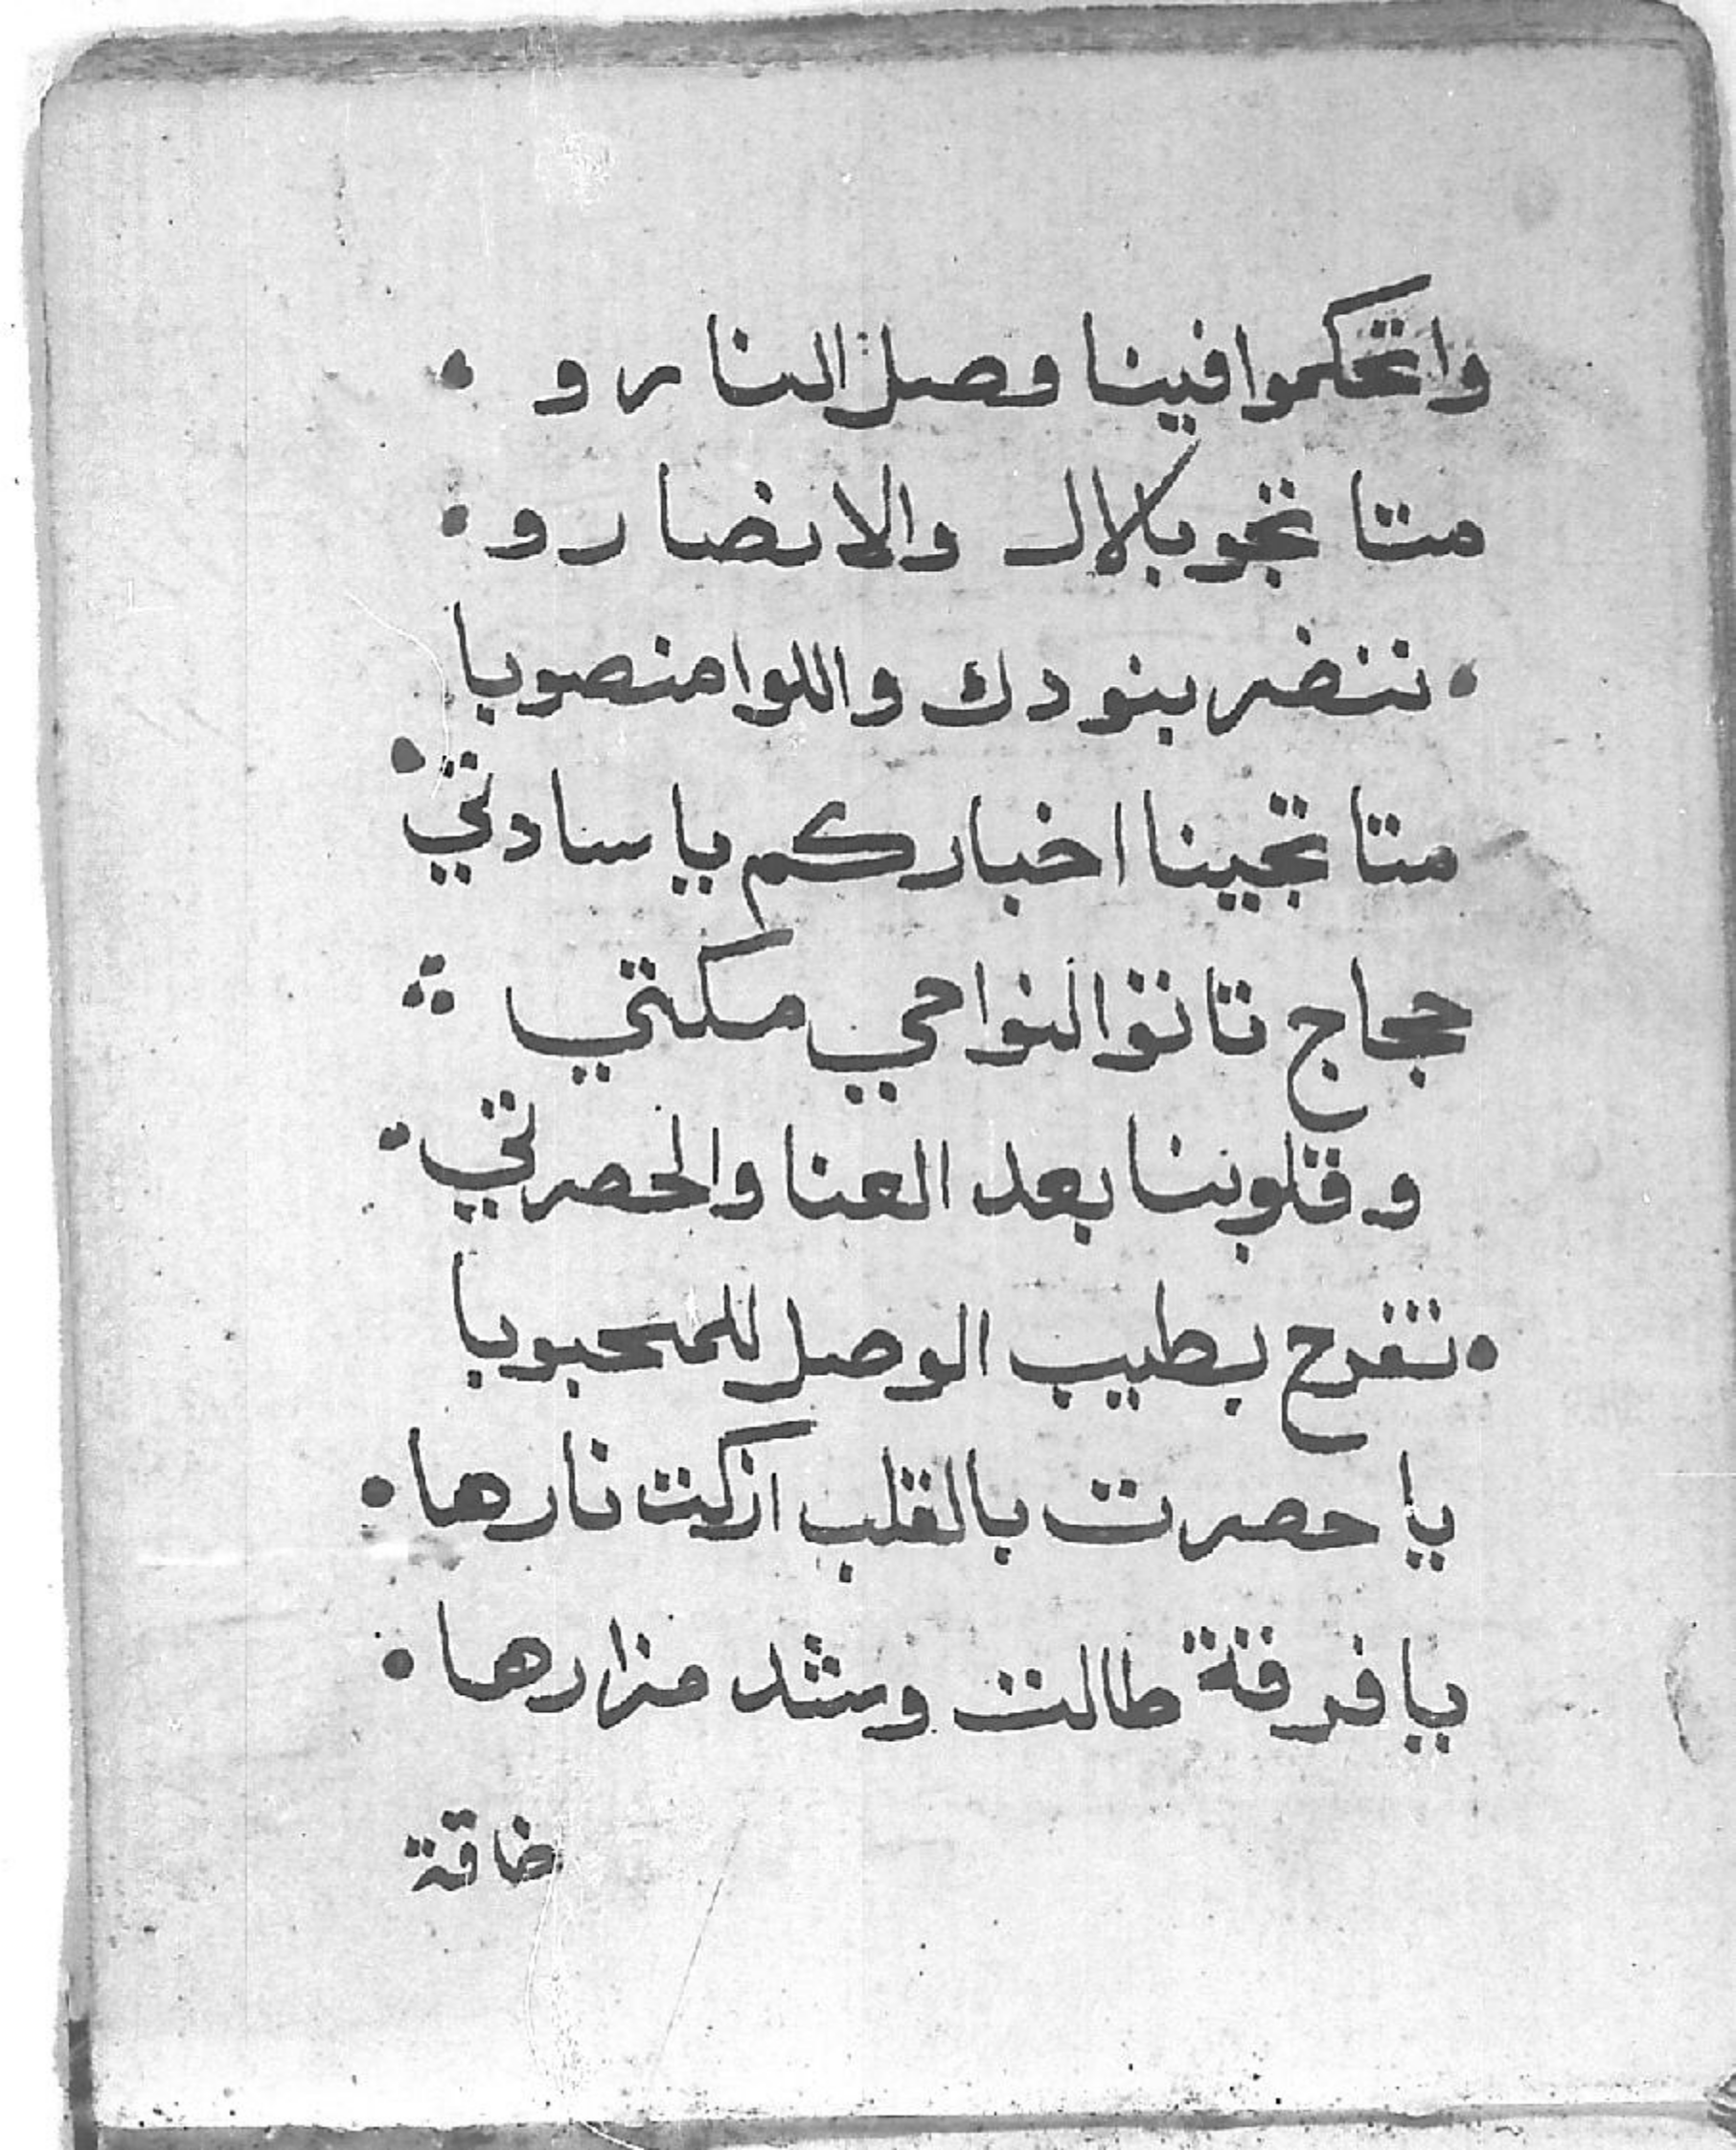 واتحكموا فينا وصل النارو •
متا نجو بلال والانضارو •
• ننضر بنودك واللوا منصوبا
متا تجينا اخباركم يا سادتي •
حجاج تاتو النواحي مكتي ∴
وقلوبنا بعد العنا والحصرتي •
• تفرح بطيب الوصل للمحبوبا
يا حصرت بالقلب ازكت نارها •
يا فرقة طالت وشد مزارها •
ضاقة